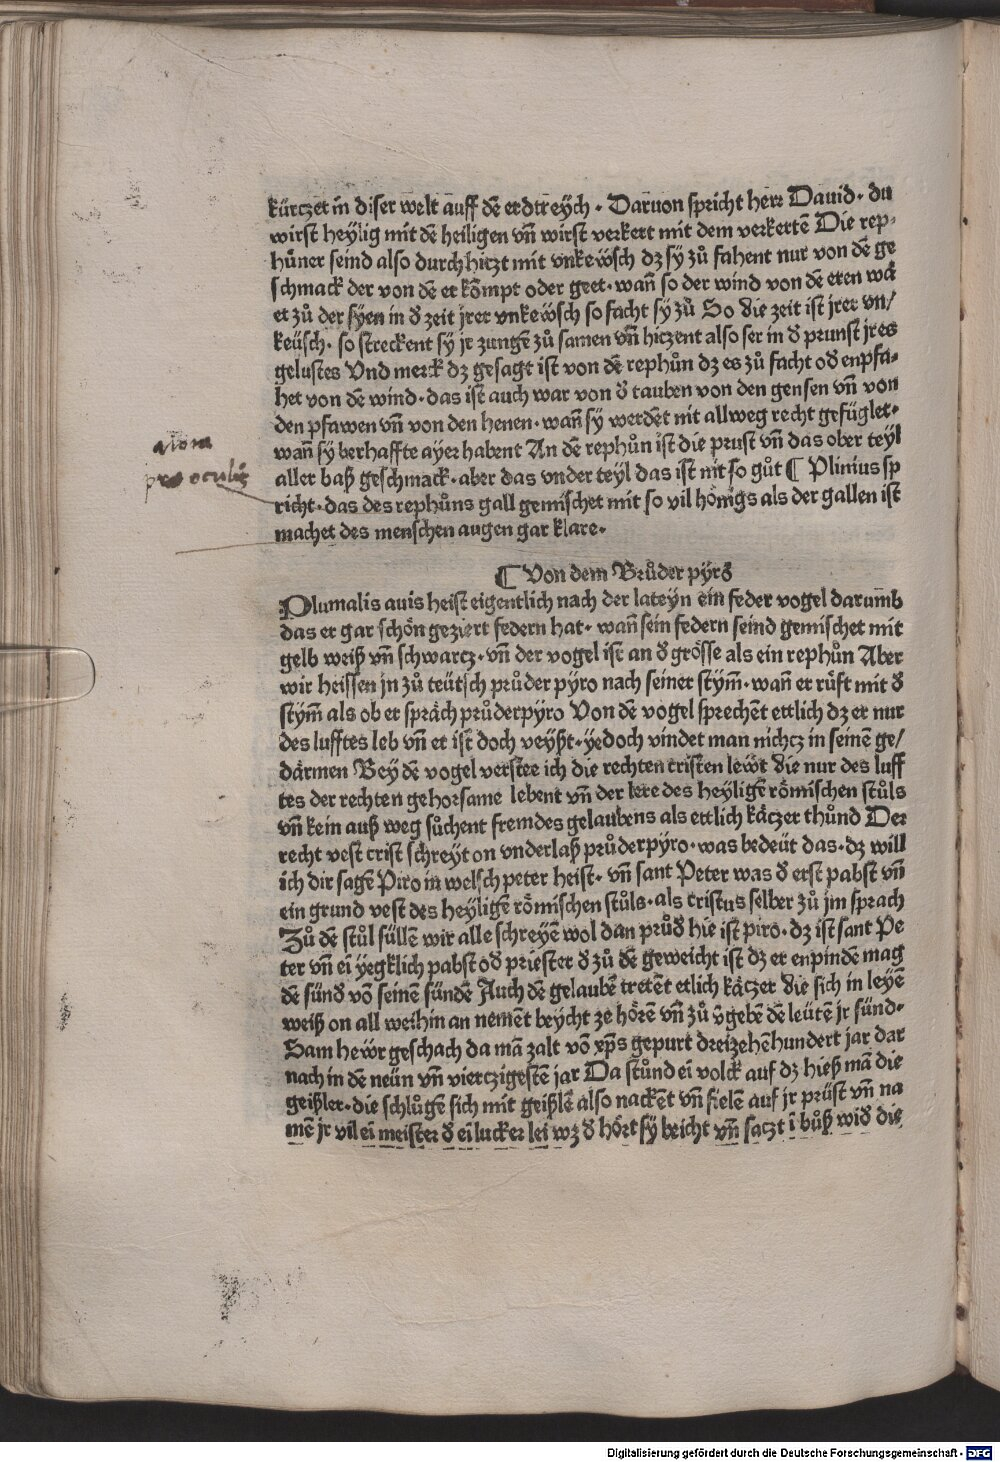 kürczet in diser welt auff dē erdtreÿch · Daruon spricht herr Dauid · du
wirst heÿlig mit dē heiligen vñ wirst verkert mit dem verkertē Die rep-
hůner seind also durchhiczt mit vnkewsch dz sÿ zů fahent nur von dē ge
schmack der von dē er kompt oder geet · wañ so der wind von dē eren wä
et zů der syen in d̄ zeit jrer vnkewsch so facht sÿ zů So die zeit ist jrer vn/
keüsch · so streckent sÿ jr zungē zů samen vñ hiczent also ser in d̄ prunst jres
gelustes Vnd merck dz gesagt ist von dē rephůn dz es zů facht od̄ enpfa-
het von dē wind · das ist auch war von d̄ tauben von den gensen vñ von
den pfawen vñ von den henen · wañ sÿ werdēt nit allweg recht gefüglet ·
wañ sÿ berhaffte ayer habent An dē rephůn ist die prust vñ das ober teÿl
aller baß geschmack · aber das vnder teÿl das ist nit so gůt ¶ Plinius sp
richt · das des rephůns gall gemischet mit so vil hönigs als der gallen ist
machet des menschen augen gar klare ·
pro oculis
¶ Von dem Brůder pÿrō
Plumalis auis heist eigentlich nach der lateÿn ein feder vogel darumb
das er gar schön geziert federn hat · wañ sein federn seind gemischet mit
gelb weiß vñ schwarcz · vñ der vogel ist an d̄ grösse als ein rephůn Aber
wir heissen jn zů teütsch průder pÿro nach seiner stÿm̄ · wañ er rüft mit d̄
stÿm̄ als ob er spräch průderpÿro Von dē vogel sprechēt ettlich dz er nur
des lufftes leb vñ er ist doch veÿßt · ÿedoch vindet man nichcz in seinē ge/
därmen Beÿ dē vogel verstee ich die rechten cristen lewt die nur des luff
tes der rechten gehorsame lebent vñ der lere des heÿligē römischen stůls
vñ kein auß weg sůchent fremdes gelaubens als ettlich käczer thůnd Der
recht vest crist schreÿt on vnderlaß průderpÿro · was bedeüt das · dz will
ich dir sagē Piro in welsch peter heist · vñ sant Peter was d̄ erst pabst vñ
ein grund vest des heÿligē römischen stůls · als cristus selber zů jm sprach
Zů dē stůl süllē wir alle schreyē wol dan průd̄ hie ist piro · dz ist sant Pe
ter vñ ei ÿegklich pabst od̄ priester d̄ zů dē geweicht ist dz er enpindē mag
dē sünd̄ vō seinē sündē Auch dē gelaubē tretēt etlich käczer die sich in leyē
weiß on all weihin an nemēt beÿcht ze hörē vñ zů v̄gebē dē leütē jr sünd ·
Sam hewr geschach da mā zalt vō xp̄s gepurt dreizehēhundert jar dar
nach in dē neün vñ vierczigestē jar Da stůnd ei volck auf dz hieß mā die
geißler · die schlůgē sich mit geißlē also nackēt vñ fielē auf jr prüst vñ na
mē jr vil ei meister d̄ ei lucker lei wz d̄ hört sÿ beicht vñ saczt i bůß wid̄ die
Digitalisierung gefördert durch die Deutsche Forschungsgemeinschaft - DFG